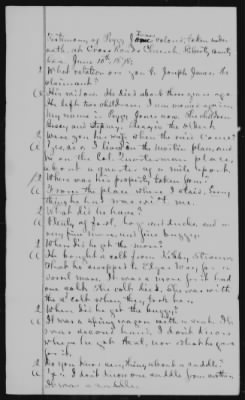 Testimony of Peggy Jones colored, taken under
oath, at Cross Roads Church, Liberty County,
Geo. June 10th, 1878:
Q What relation are you to Joseph Jones, the
claimant?
A His widow. He died about three years ago.
He left two children. I am again
My name is Peggy Jones now. The children
and
Q Were you his wife when the raid came?
A Yes, sir, I lived on the plan,
on the Col. place,
about a quarter of a mile apart.
Q Where was his property taken from?
A From the place where I staid. Every
thing he had was with me.
Q What did he have?
A Plenty of fowl, hogs and ducks, and a
very fine mare, and fine buggy.
Q When did he get the mare?
A He bought a colt from
that he swapped to for a
mare. It was a year he had
one colt. The colt died, she was with
the 2nd colt when they took her.
Q When did he get the buggy?
A It was a spring wagon with a seat. It
was a second hand. I don't know
where he got that, nor what he gave
for it.
Q Do you know anything about a saddle?
A I don't know one saddle from another.
It was a saddle.